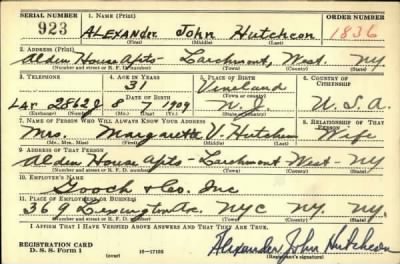 SERIAL NUMBER 1. NAME (Print) ORDER NUMBER
923 ALEXANDER John Hutcheon 1836
(First) (Middle) (Last)
2. ADDRESS (Print)
Alden House Apts - Larchmont, West. NY.
(Number and street or R. F. D. number) (Town) (County) (State)
3. TELEPHONE 4. AGE IN YEARS 5. PLACE OF BIRTH 6. COUNTRY OF CITIZENSHIP
31 Vineland
DATE OF BIRTH (Town or county)
LAR 2862J 8 7 1909 N. J. U.S.A.
(Exchange) (Number) (Mo.) (Day) (Yr.) (State or country)
7. NAME OF PERSON WHO WILL ALWAYS KNOW YOUR ADDRESS 8. RELATIONSHIP OF THAT PERSON
Mrs. Margarette V. Hutcheon Wife
(Mr., Mrs., Miss) (First) (Middle) (Last)
9. ADDRESS OF THAT PERSON
Alden House Apts - Larchmont West - NY
(Number and street or R. F. D. number) (Town) (County) (State)
10. EMPLOYER'S NAME
Gooch & Co. Inc
11. PLACE OF EMPLOYMENT OR BUSINESS
369 Lexington Ave. NYC NY. NY.
(Number and street or R. F. D. number) (Town) (County) (State)
I AFFIRM THAT I HAVE VERIFIED ABOVE ANSWERS AND THAT THEY ARE TRUE.
REGISTRATION CARD
D. S. S. Form 1 16—17105 Alexander John Hutcheon
(Registrant's signature)